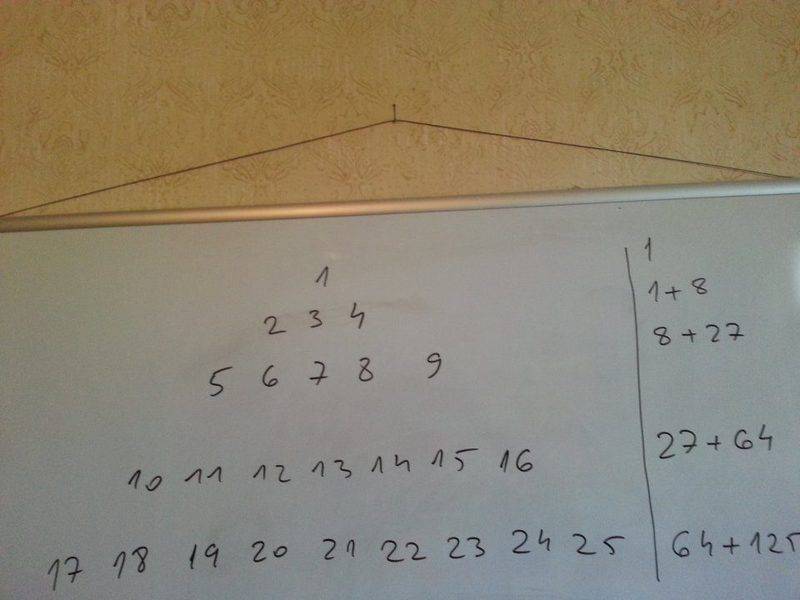 1 1
2 3 4 1+8
5 6 7 8 9 8+27
10 11 12 13 14 15 16 27+64
17 18 19 20 21 22 23 24 25 64+125